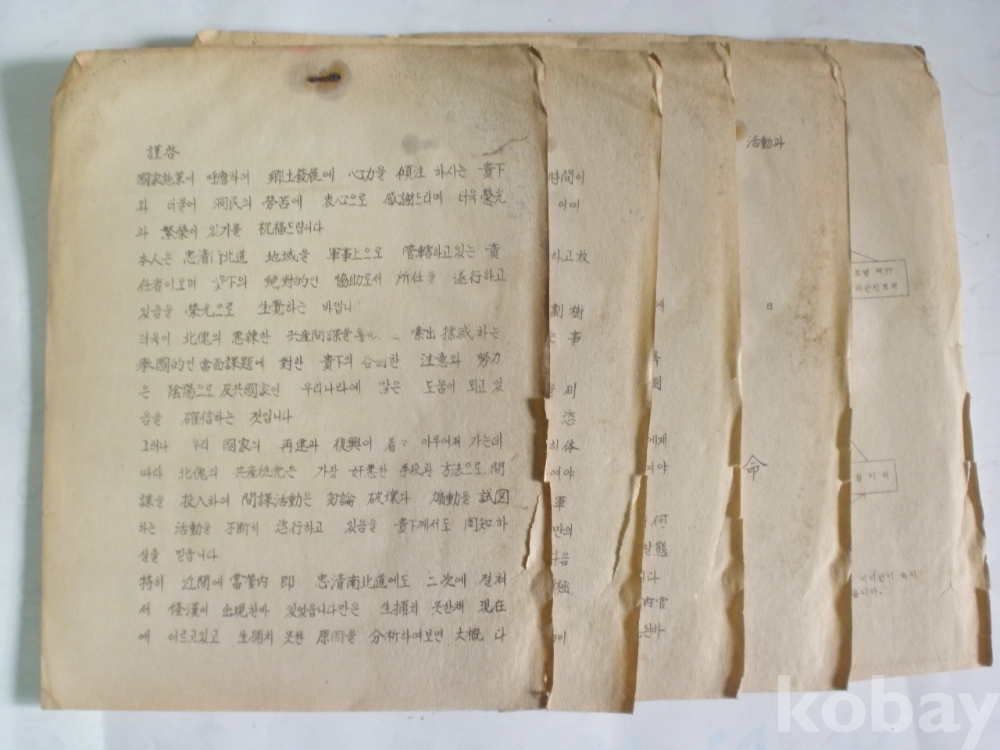 謹啓
國家施策에 呼應하여 鄕土發展에 心力을 傾注 하시는 貴下
와 더불어 洞民의 勞苦에 衷心으로 感謝드리며 더욱 榮光
과 繁榮이 있기를 祝福드립니다
本人은 忠淸 北道 地域을 軍事上으로 管轄하고있는 責
任者이오며 下의 絶對的인 協助로서 所任을 遂行하고
있음을 榮光으로 生覺하는 바입니
더욱이 北傀의 惡辣한 共産間諜을 索出 撲滅 하는
擧國的인 當面課題에 對한 貴下의 注意와 努力
은 陰陽으로 反共國家인 우리나라에 많은 도움이 되고 있
음을 確信하는 것입니다
그러나 우리 國家의 再建과 復興이 이루어져 가는데
따라 北傀의 共産徒党은 가장 奸悪한 手段과 方法으로 間
諜을 投入하여 間諜活動은 勿論 破壞와 煽動을 試図
하는 活動을 不断히 恣行하고 있음을 貴下께서도 周知하
실줄 믿읍니다
特히 近間에 當管内 即 忠清南北道에도 二次에 걸쳐
서 怪漢이 出現한바 있었읍니다만은 生捕치 못한채 現在
에 이르고있고 生捕치 못한 原因을 分析하여보면 大槪 다
時間이
이며
하고 故
劃 樹
事
恣
리 体
여야
軍
만의
다음
에
에게
여야
何
態
니다
内官
된바
活動과
日
命
kobay